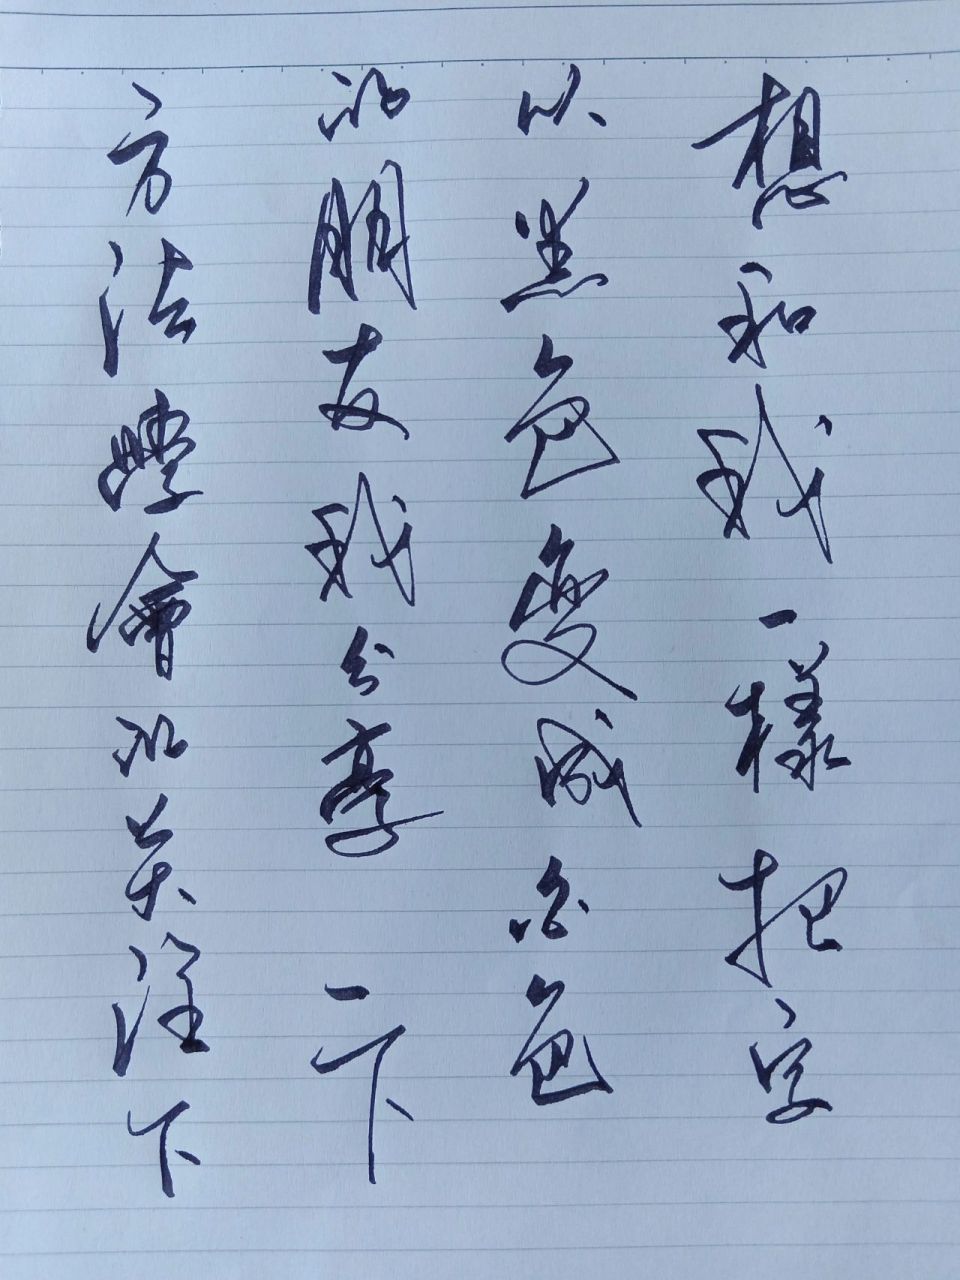 想和我一樣把字
以黑色變成白色
的朋友我分享一下
方法學會的关注下